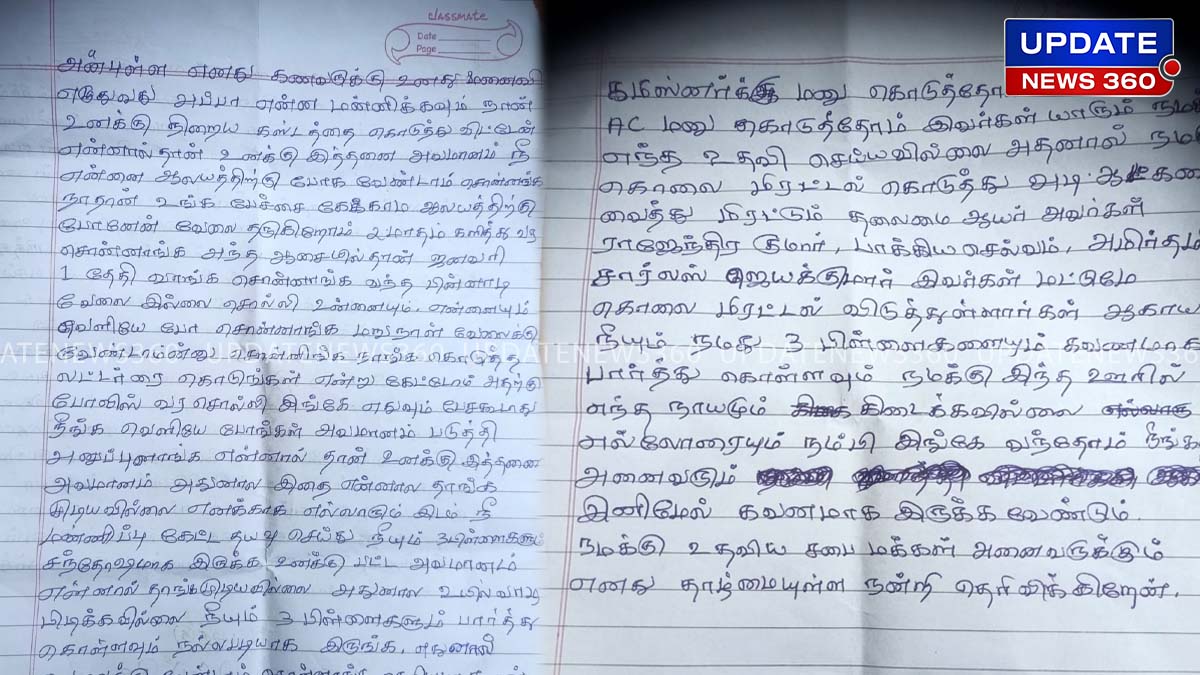 classmate
Date
Page
அன்புள்ள எனது கணவருக்கு உனது மனைவி
எழுதுவது அப்பா என்ன மன்னிக்கவும் நான்
உனக்கு நிறைய கஸ்டத்தை கொடுத்து விட்டேன்
என்னால்தான் உனக்கு இத்தனை அவமானம் நீ
என்னை ஆலயத்திற்கு போக வேண்டாம் சொன்னீங்க
நாதான் உங்க பேச்சை கேக்காம ஆலயத்திற்கு
போனேன் வேலை தருகிறோம் 2 மாதம் கழித்து வர
சொன்னாங்க அந்த ஆசையில்தான் ஜனவரி
1 தேதி வாங்க சொன்னாங்க வந்த பின்னாடி
வேலை இல்லை சொல்லி உன்னையும், என்னையும்
வெளியே போ சொன்னாங்க மறுநாள் வேலைக்கு
வேண்டாம்னு சொன்னீங்க நாங்க கொடுத்த
லட்டர்ரை கொடுங்கள் என்று கேட்டோம் அதற்கு
போலிஸ் வர சொல்லி அங்கே எதுவும் பேசகூடாது
நீங்க வெளியே போங்கள் அவமானம் படுத்தி
அனுப்புனாங்க என்னால் தான் உனக்கு இத்தனை
அவமானம் அதுனால இதை என்னால தாங்க
முடியவில்லை எனக்காக எல்லாரும் இடம் நீ
மண்ணிப்பு கேட்ட தயவு செய்து நீயும் 3பிள்ளைகளும்
சந்தோஷமாக இருக்க உனக்கு பட்ட அவமானம்
என்னால் தாங்கமுடியவில்லை அதுனால உயிர்வாழ
பிடிக்கவில்லை நீயும் 3 பிள்ளைகளும் பார்த்து
கொள்ளவும் நல்லபடியாக இருங்க, எதுனால்
UPDATE
NEWS 360
கமிஸ்னர்க்கு மனு கொடுத்தோ
AC மனு கொடுத்தோம் இவர்கள் யாரும் நம
எந்த உதவி செய்யவில்லை அதனால் நம
கொலை மிரட்டல் கொடுத்து அடி ஆட்கள
வைத்து மிரட்டும் தலைமை ஆயர் அவர்கள்
ராஜேந்திர குமார், பாக்கிய செல்வம், அமிர்தம்
சார்லஸ் ஜெயக்குமார் இவர்கள் மட்டுமே
கொலை மிரட்டல் விடுத்துள்ளார்கள் ஆகாய
நீயும் நமது 3 பிள்ளைகளையும் கவனமாக
பார்த்து கொள்ளவும் நமக்கு இந்த ஊரில்
எந்த நாயமும் கிடைக்கவில்லை
எல்லோரையும் நம்பி இங்கே வந்தோம் நீங்க
அனைவரும்
இனிமேல் கவனமாக இருக்க வேண்டும்.
நமக்கு உதவிய சபை மக்கள் அனைவருக்கும்
எனது தாழ்மையுள்ள நன்றி தெரிவிக்கிறேன்.
UPDATENEWS360 UPDATENEWS360 UPDATENEWS360